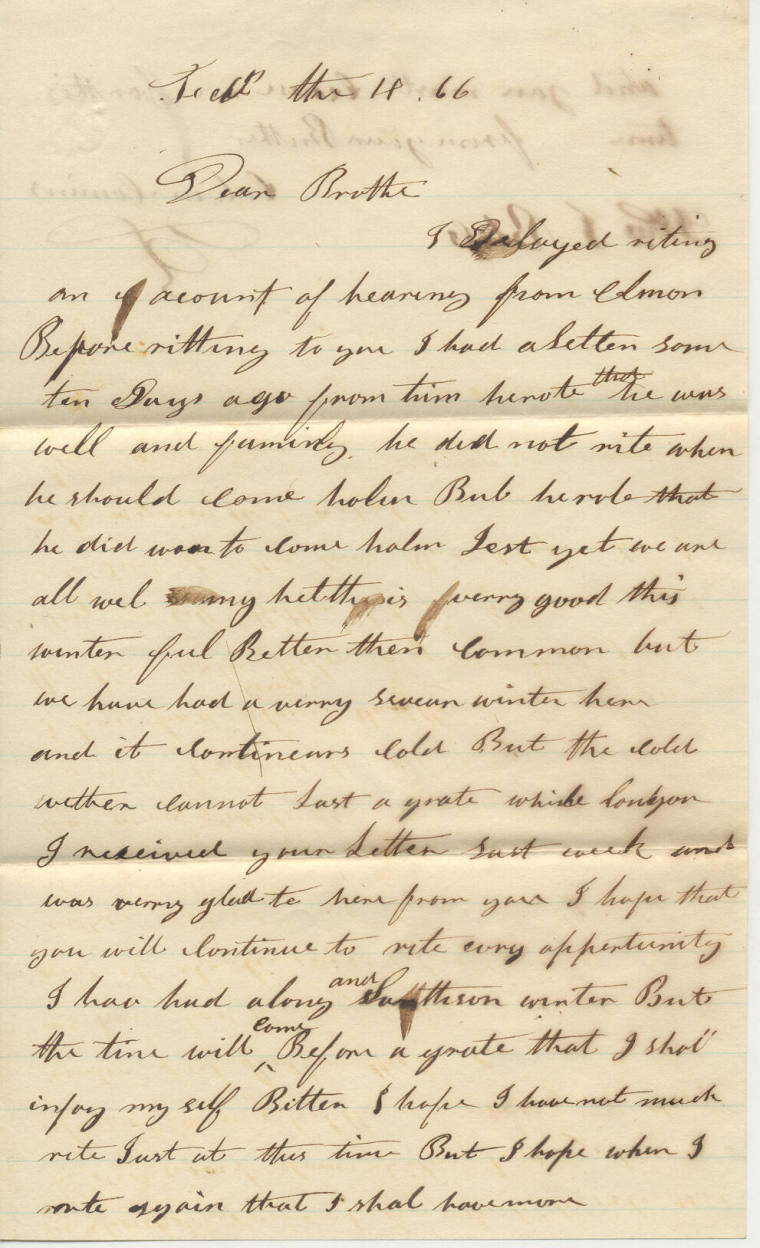 the 18 . 66
Dear Brothe
I Delayed riting
on acount of hearing from Elmon
Before ritting to you I had a Letter some
ten Days ago from him he rote that he was
well and familey. he did not rite when
he should come holm But he rote that
he did want to come holm Jest yet we are
all wel my helth is verry good this
winter ful Better then common but
we have had a verry sevear winter here
and it continears cold But the cold
wether cannot Last a grate while longor
I received your Letter Last week and
was verry glad to here from you I hope that
you will continue to rite evry oppertunity
I hav had a long and winter But
the time will come Before a grate that I shal
injoy my self Bitter I hope I have not much
rite Just at this time But I hope when I
rote again that I shal have more